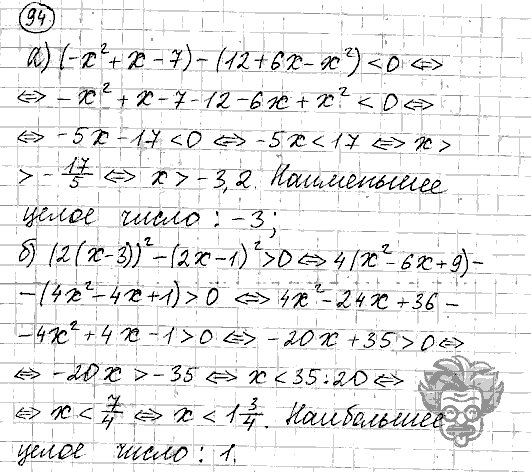 94
а) (-x² + x - 7) - (12 + 6x - x²) < 0 ⇔
⇔ -x² + x - 7 - 12 - 6x + x² < 0 ⇔
⇔ -5x - 17 < 0 ⇔ -5x < 17 ⇔ x >
> -17/5 ⇔ x > -3,2. Наименьшее
целое число: -3;
б) (2(x-3))² - (2x-1)² > 0 ⇔ 4(x² - 6x + 9) -
- (4x² - 4x + 1) > 0 ⇔ 4x² - 24x + 36 -
- 4x² + 4x - 1 > 0 ⇔ -20x + 35 > 0 ⇔
⇔ -20x > -35 ⇔ x < 35 : 20 ⇔
⇔ x < 7/4 ⇔ x < 1 3/4. Наибольшее
целое число: 1.